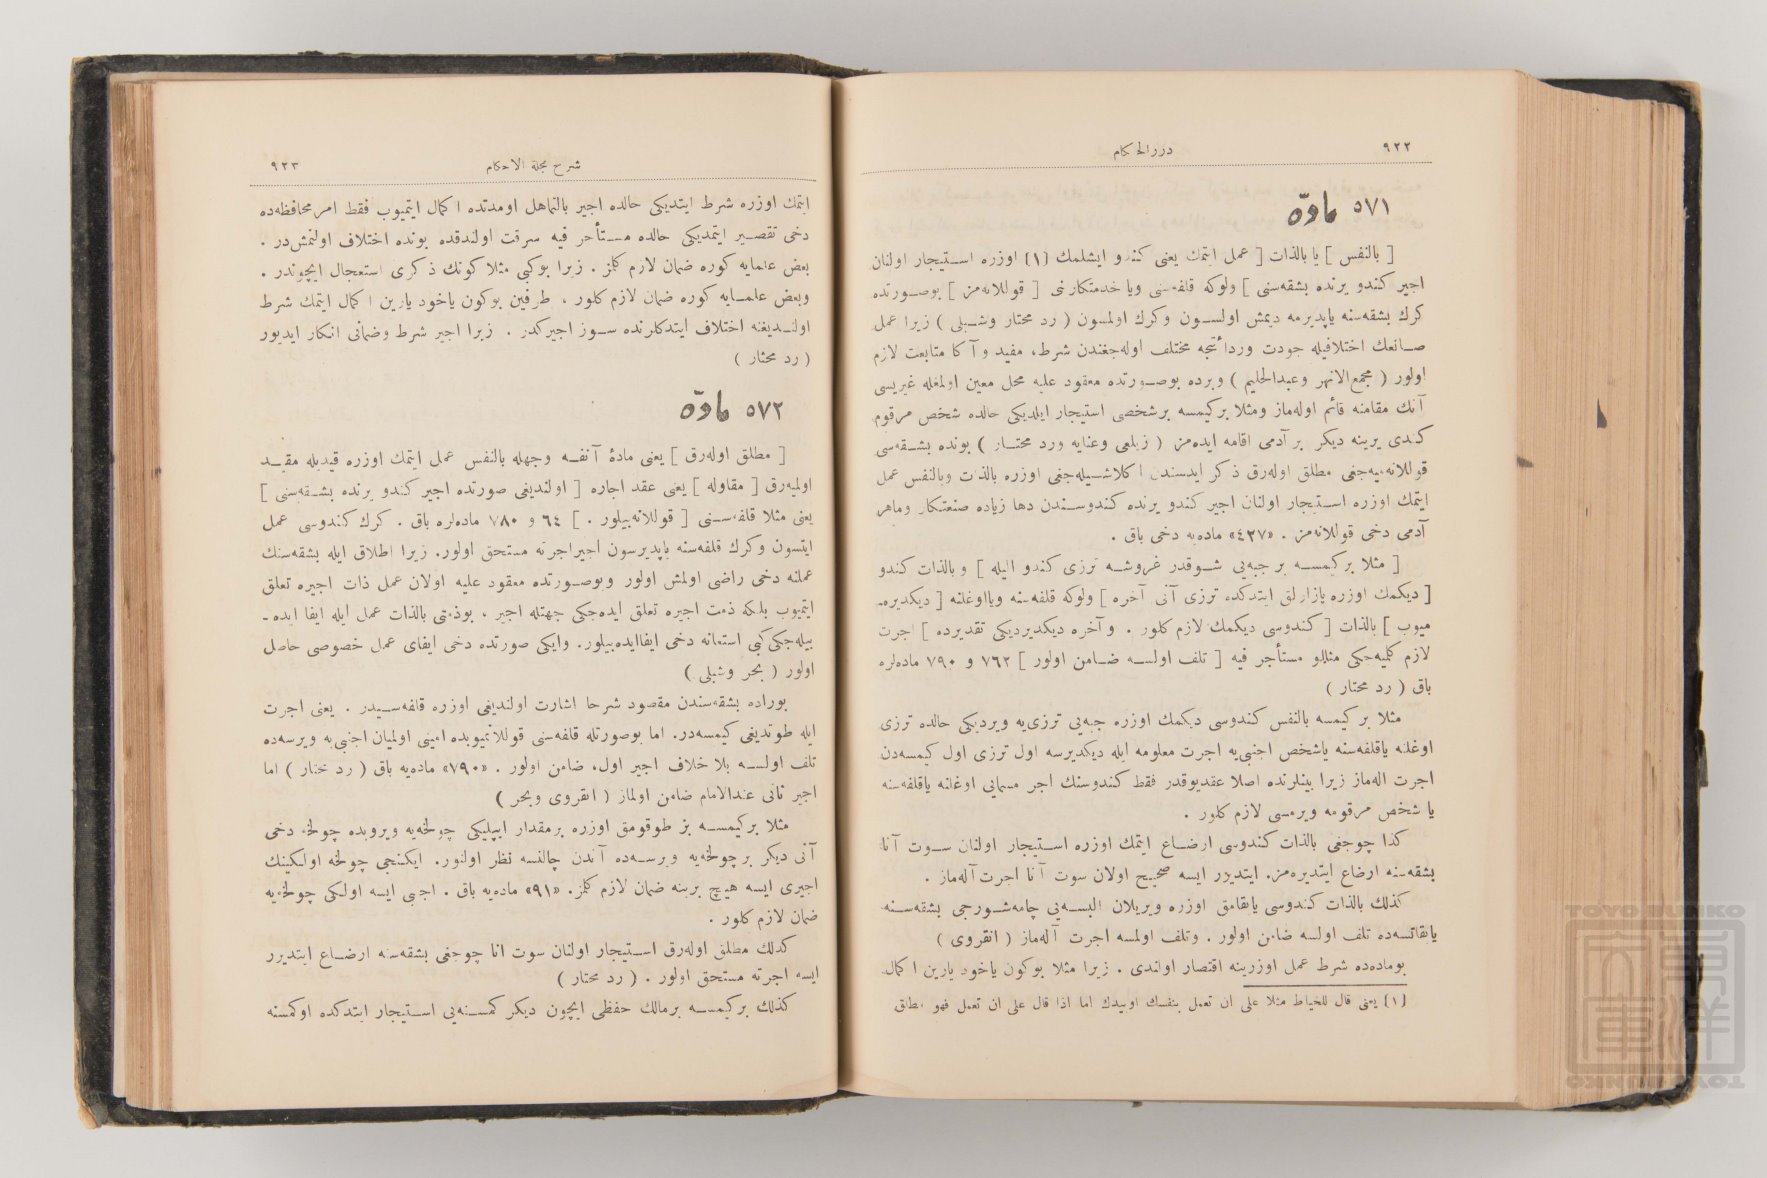 ٩٢٢
دررالحكام
٥٧١ مادّه
[ بالنفس ] يا بالذات [ عمل ايتمك يعنى كندو ايشلمك (١) اوزره استيجار اولنان
اجير كندو يرنده بشقه‌سنى ] ولوكه قلفه‌سنى ويا خدمتكارنى [ قوللانه‌مز ] بوصورتده
كرك بشقه‌سنه ياپديرمه ديمش اولسون وكرك اولمسون ( رد محتار وشبلى ) زيرا عمل
صانعك اختلافيله جودت وردائتجه مختلف اوله‌جغندن شرط، مفيد و آكا متابعت لازم
اولور ( مجمع‌الانهر وعبدالحليم ) وبرده بوصورتده معقود عليه محل معين اولمغله غيريسى
آنك مقامنه قائم اوله‌ماز ومثلا بركيمسه برشخصى استيجار ايلديكى حالده شخص مرقوم
كندى يرينه ديكر بر آدمى اقامه ايده‌مز ( زيلعى وعنايه ورد محتار ) بونده بشقه‌سى
قوللانه‌ميه‌جغى مطلق اوله‌رق ذكر ايدسندن اكلاشيله‌جغى اوزره بالذات وبالنفس عمل
ايتمك اوزره استيجار اولنان اجير كندو يرنده كندوسندن دها زياده صنعتكار وماهر
آدمى دخى قوللانه‌مز . «٤٣٧» ماده‌يه دخى باق .
[ مثلا بركيمسه بر جبه‌يى شوقدر غروشه ترزى كندو اليله ] و بالذات كندو
[ ديكمك اوزره بازارلق ايتدكده ترزى آنى آخره ] ولوكه قلفه‌سنه ويااوغلنه [ ديكديره‌ـ
ميوب ] بالذات [ كندوسى ديكمك لازم كلور . و آخره ديكديرديكى تقديرده ] اجرت
لازم كلميه‌جكى مثللو مستأجر فيه [ تلف اولسه ضامن اولور ] ٧٦٢ و ٧٩٠ ماده‌لره
باق ( رد محتار )
مثلا بر كيمسه بالنفس كندوسى ديكمك اوزره جبه‌يى ترزى‌يه ويرديكى حالده ترزى
اوغلنه ياقلفه‌سنه ياشخص اجنبى‌يه اجرت معلومه ايله ديكديرسه اول ترزى اول كيمسه‌دن
اجرت اله‌ماز زيرا بينلرنده اصلا عقديوقدر فقط كندوسنك اجر مسمايى اوغلنه ياقلفه‌سنه
يا شخص مرقومه ويرمسى لازم كلور .
كذا چوجغى بالذات كندوسى ارضاع ايتمك اوزره استيجار اولنان سوت آنا
بشقه‌سنه ارضاع ايتديره‌مز. ايتديرر ايسه صحيح اولان سوت آنا اجرت آله‌ماز .
كذلك بالذات كندوسى يايقامق اوزره ويريلان البسه‌يى چامه‌شورجى بشقه‌سنه
يايقاتسه‌ده تلف اولسه ضامن اولور . وتلف اولمسه اجرت آله‌ماز ( انقروى )
بوماده‌ده شرط عمل اوزرينه اقتصار اولندى . زيرا مثلا بوكون ياخود يارين اكمال
(١) يعنى قال للخياط مثلا على ان تعمل بنفسك اوبيدك اما اذا قال على ان تعمل فهو مطلق
شرح مجلة الاحكام
٩٢٣
ايتمك اوزره شرط ايتديكى حالده اجير بالتماهل اومدتده اكمال ايتميوب فقط امرمحافظه‌ده
دخى تقصير ايتمديكى حالده مستأجر فيه سرقت اولندقده بونده اختلاف اولنمش‌در .
بعض علمايه كوره ضمان لازم كلمز . زيرا بوكبى مثلا كونك ذكرى استعجال ايچوندر .
وبعض علمايه كوره ضمان لازم كلور . طرفين بوكون ياخود يارين اكمال ايتمك شرط
اولنديغنه اختلاف ايتدكلرنده سوز اجيركدر . زيرا اجير شرط وضمانى انكار ايديور
( رد محتار )
٥٧٢ مادّه
[ مطلق اوله‌رق ] يعنى مادۀ آنفه وجهله بالنفس عمل ايتمك اوزره قيديله مقيد
اولميه‌رق [ مقاوله ] يعنى عقد اجاره [ اولنديغى صورتده اجير كندو يرنده بشقه‌سنى ]
يعنى مثلا قلفه‌سنى [ قوللانه‌بيلور . ] ٦٤ و ٧٨٠ ماده‌لره باق . كرك كندوسى عمل
ايتسون وكرك قلفه‌سنه ياپديرسون اجيراجرته مستحق اولور. زيرا اطلاق ايله بشقه‌سنك
عملنه دخى راضى اولمش اولور وبوصورتده معقود عليه اولان عمل ذات اجيره تعلق
ايتميوب بلكه ذمت اجيره تعلق ايده‌جكى جهتله اجير ، بوذمتى بالذات عمل ايله ايفا ايده ـ
بيله‌جكى كبى استعانه دخى ايفاايده‌بيلور. وايكى صورتده دخى ايفاى عمل خصوصى حاصل
اولور ( بحر وشبلى )
بوراده بشقه‌سندن مقصود شرحا اشارت اولنديغى اوزره قلفه‌سيدر . يعنى اجرت
ايله طوتديغى كيمسه‌در. اما بوصورتله قلفه‌سنى قوللانميوبده امينى اولميان اجنبى‌يه ويرسه‌ده
تلف اولسه بلا خلاف اجير اول، ضامن اولور . «٧٩٠» ماده‌يه باق ( رد محتار ) اما
اجير ثانى عندالامام ضامن اولماز ( انقروى وبحر )
مثلا بركيمسه بز طوقومق اوزره برمقدار ايپليكى چولخه‌يه ويروبده چولخه دخى
آنى ديكر بر چولخه‌يه ويرسه‌ده آندن چالنسه نظر اولنور. ايكنجى چولخه اولكينك
اجيرى ايسه هيچ برينه ضمان لازم كلمز. «٩١» ماده‌يه باق . اجنبى ايسه اولكى چولخه‌يه
ضمان لازم كلور .
كذلك مطلق اوله‌رق استيجار اولنان سوت انا چوجغى بشقه‌سنه ارضاع ايتديرر
ايسه اجرته مستحق اولور . ( رد محتار )
كذلك بركيمسه برمالك حفظى ايچون ديكر كمسنه‌يى استيجار ايتدكده اوكمسنه
TOYO BUNKO
東洋文庫
TOYO BUNKO